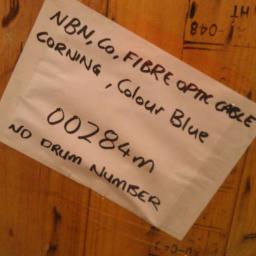 NBN, Co, FIBRE OPTIC CABLE
CORNING, Colour Blue
00284m
NO DRUM NUMBER
048